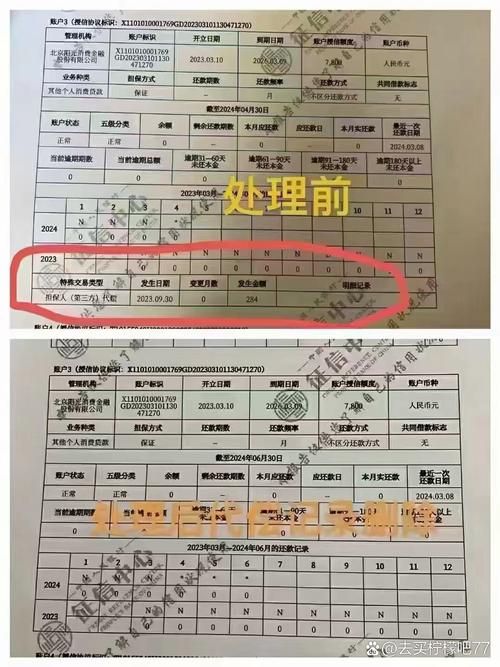 账户3（授信协议标识：X1101010001769GD20230310113047­1270）
管理机构 账户标识 开立日期 到期日期 账户授信额度 账户币种
北京阳光消费金融股份有限公司 X1101010001769GD202303101130471270 2023.03.10 2026.03.09 7,800 人民币元
业务种类 担保方式 还款期数 还款频率 还款方式 共同借款标志
其他个人消费贷款 保证 -- 月 不区分还款方式 无
截至2024年04月30日
账户状态 五级分类 余额 剩余还款期数 本月应还款 应还款日 本月实还款 最近一次还款日期
正常 正常 0 0 0 2024.03.08
当前逾期期数 当前逾期总额 逾期31—60天未还本金 逾期61—90天未还本金 逾期91—180天未还本金 逾期180天以上未还本金
0 0 0 0 0 0
2023年03月
处理前
1 2 3 4 5 6 7 8 9 10 11 12
2024
2023
特殊交易类型 发生日期 变更月数 发生金额 明细记录
担保人（第三方）代偿 2023.09.30 0 284
账户3（授信协议标识：X1101010001769GD202303101130471270）
管理机构 账户标识 开立日期 到期日期 账户授信额度 账户币种
北京阳光消费金融股份有限公司 X1101010001769GD202303101130471270 2023.03.10 2026.03.09 7,800 人民币元
业务种类 担保方式 还款期数 还款频率 还款方式 共同借款标志
其他个人消费贷款 保证 -- 月 不区分还款方式 无
截至2024年06月30日
账户状态 五级分类 余额 剩余还款期数 本月应还款 应还款日 本月实还款 最近一次还款日期
正常 正常 0 0 2024.03.08
处理后代偿记录删除
2023年03月—2024年06月的还款记录
1 2 3 4 5 6 7 8 9 10 11 12
2024
2023
征信中心
头条 @去买柠檬吧77